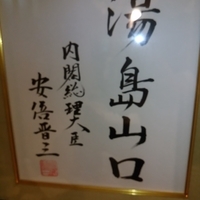 湯島山口
内閣総理大臣
安倍晋三